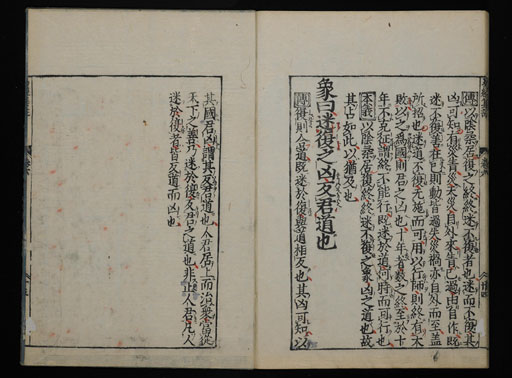 傳以陰柔居復之終終迷不復者也迷而不復其
凶可知有災眚災天災自外來眚己過由自作既
迷不復善在己則動皆過失災禍亦自外而至蓋
所招也迷道不復无施而可用以行師則終有大
敗以之為國則君之凶也十年者數之終至於十
年不克征謂終不能行既迷於道何時而可行也
本義以陰柔居復終終迷不復之象凶之道也故
其占如此以猶及也
象曰迷復之凶反君道也
傳復則合道既迷於復與道相反也其凶可知以
其國君凶謂其反君道也人君居上而治衆當從
天下之善乃迷於復反君之道也非止人君凡人
迷於復者皆反道而凶也